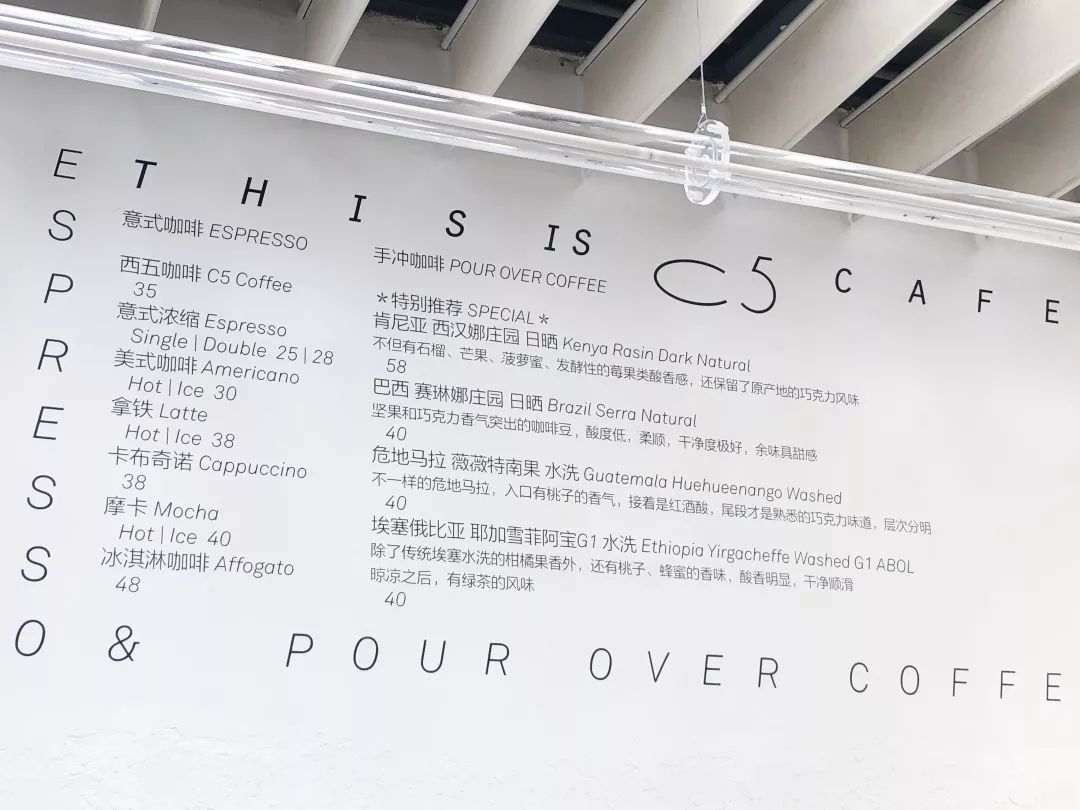 THIS IS C5 CAFE
ESPRESSO & POUR OVER COFFE
意式咖啡 ESPRESSO
西五咖啡 C5 Coffee
35
意式浓缩 Espresso
Single | Double 25 | 28
美式咖啡 Americano
Hot | Ice 30
拿铁 Latte
Hot | Ice 38
卡布奇诺 Cappuccino
38
摩卡 Mocha
Hot | Ice 40
冰淇淋咖啡 Affogato
48
手冲咖啡 POUR OVER COFFEE
*特别推荐 SPECIAL*
肯尼亚 西汉娜庄园 日晒 Kenya Rasin Dark Natural
不但有石榴、芒果、菠萝蜜、发酵性的莓果类酸香感，还保留了原产地的巧克力风味
58
巴西 赛琳娜庄园 日晒 Brazil Serra Natural
坚果和巧克力香气突出的咖啡豆，酸度低，柔顺，干净度极好，余味具甜感
40
危地马拉 薇薇特南果 水洗 Guatemala Huehueenango Washed
不一样的危地马拉，入口有桃子的香气，接着是红酒酸，尾段才是熟悉的巧克力味道，层次分明
40
埃塞俄比亚 耶加雪菲阿宝G1 水洗 Ethiopia Yirgacheffe Washed G1 ABOL
除了传统埃塞水洗的柑橘果香外，还有桃子、蜂蜜的香味，酸香明显，干净顺滑
晾凉之后，有绿茶的风味
40